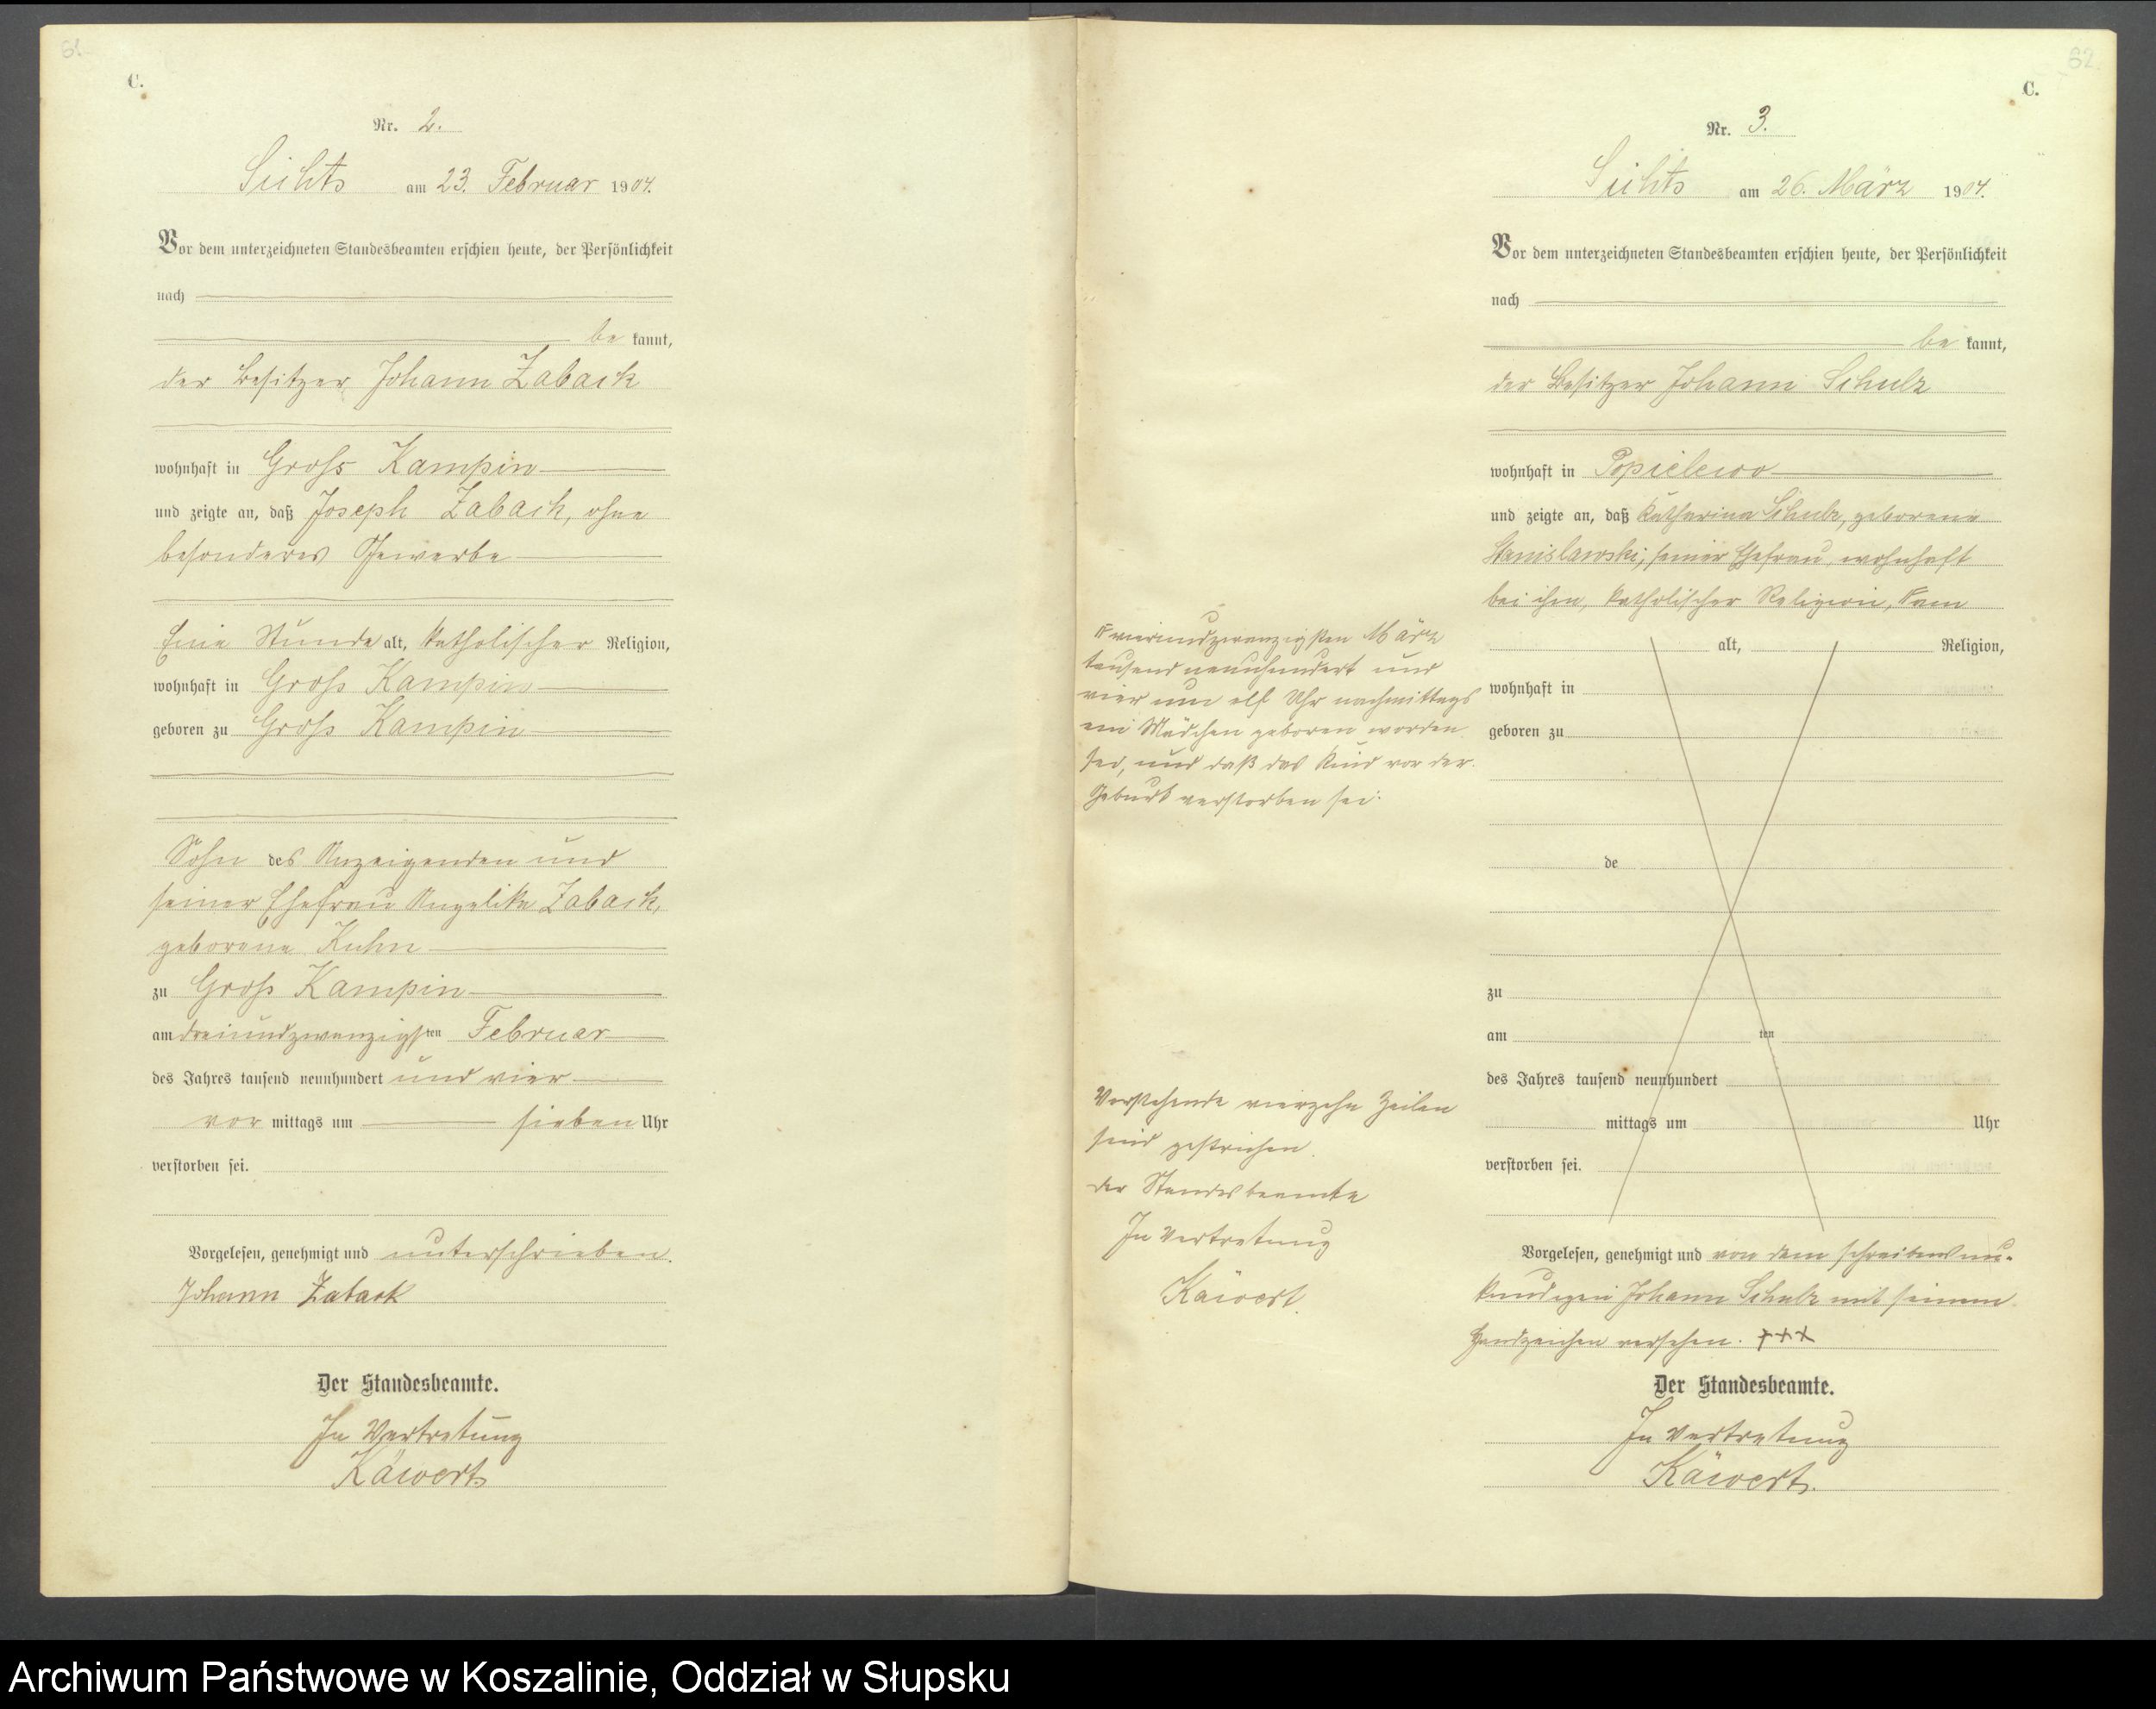 61.
C.
Nr. 2.
Suchts am 23. Februar 1904.
Vor dem unterzeichneten Standesbeamten erschien heute, der Persönlichkeit
nach
be kannt,
der Besitzer Johann Zaback
wohnhaft in Gross Kampin
und zeigte an, daß Joseph Zaback, ohne
besonderes Gewerbe
Eine Stunde alt, katholischer Religion,
wohnhaft in Gross Kampin
geboren zu Gross Kampin
Sohn des Anzeigenden und
seiner Ehefrau Angelika Zaback,
geborene Kuhn
zu Gross Kampin
am dreiundzwanzigsten Februar
des Jahres tausend neunhundert und vier
vor mittags um sieben Uhr
verstorben sei.
Vorgelesen, genehmigt und unterschrieben.
Johann Zaback
Der Standesbeamte.
In Vertretung
Käwert
62.
C.
Nr. 3.
Suchts am 26. März 1904.
Vor dem unterzeichneten Standesbeamten erschien heute, der Persönlichkeit
nach
be kannt,
der Besitzer Johann Schulz
wohnhaft in Popielewo
und zeigte an, daß Katharina Schulz, geborene
Stanislawski, seiner Ehefrau, wohnhaft
bei ihm, katholischer Religion, am
vierundzwanzigsten März
tausend neunhundert und
vier um elf Uhr nachmittags
ein Mädchen geboren worden
sei, und daß das Kind vor der
Geburt verstorben sei.
alt, Religion,
wohnhaft in
geboren zu
de
zu
am ten
des Jahres tausend neunhundert
mittags um Uhr
verstorben sei.
Vorstehende vierzehn Zeilen
sind gestrichen.
der Standesbeamte
In Vertretung
Käwert.
Vorgelesen, genehmigt und von dem schreibensun-
kundigen Johann Schulz mit seinem
Handzeichen versehen. +++
Der Standesbeamte.
In Vertretung
Käwert.
Archiwum Państwowe w Koszalinie, Oddział w Słupsku